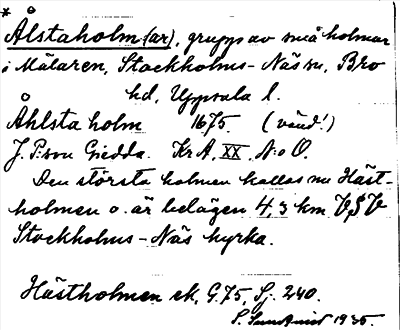 * Ålstaholm(ar), grupp av små holmar
i Mälaren, Stockholms-Näs sn, Bro
hd, Uppsala l.
Åhlsta holm 1675. (vänd!)
J. P:son Giedda. Kr A, XX, N:o O.
Den största holmen kallas nu Häst-
holmen o. är belägen 4,3 km V.S.V
Stockholms-Näs kyrka.
Hästholmen ek, G.75, Sj. 240.
1935.